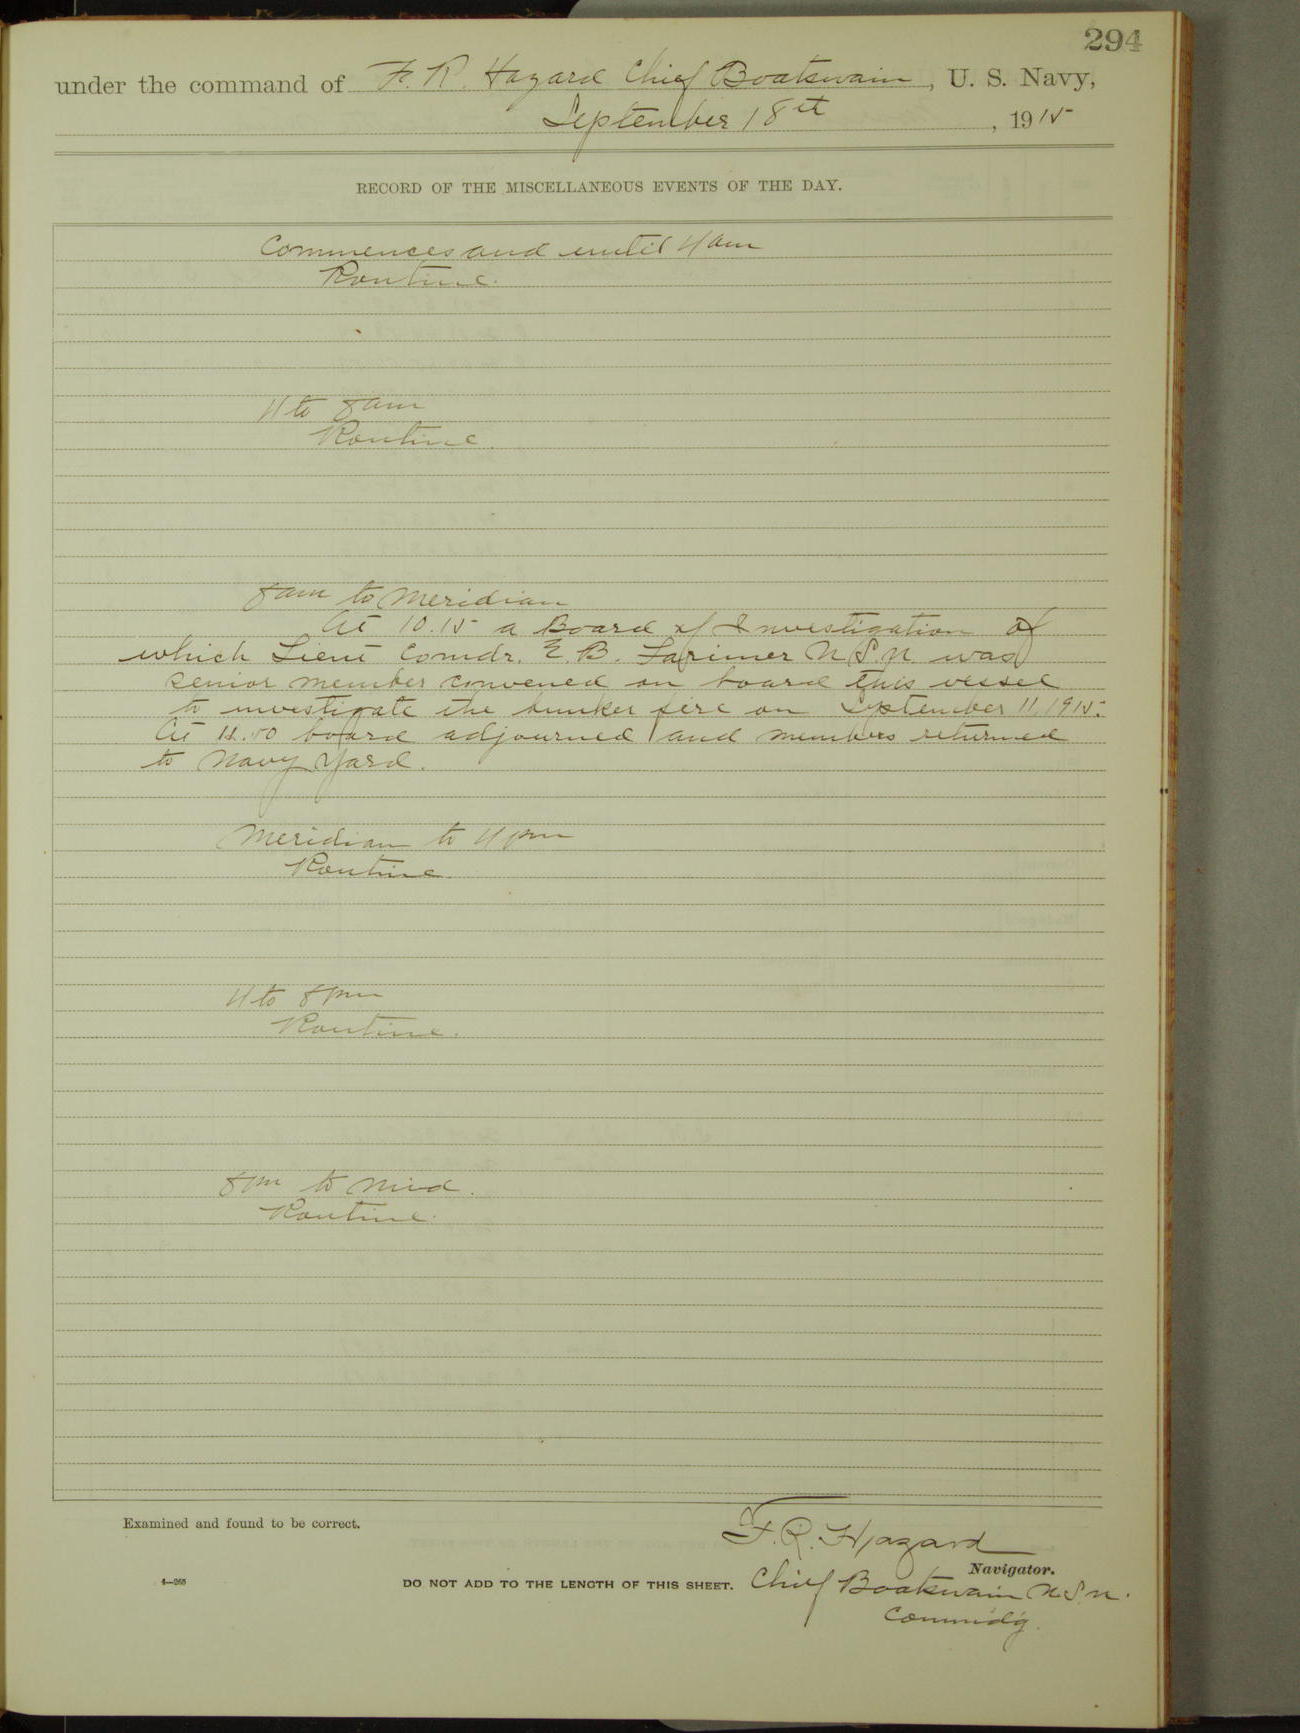 294
under the command of F. R. Hazard Chief Boatswain, U. S. Navy,
September 18th, 1915
RECORD OF THE MISCELLANEOUS EVENTS OF THE DAY.
Commences and until 4 am
Routine.
4 to 8 am
Routine.
8 am to Meridian
At 10.15 a Board of Investigation of
which Lieut Comdr. E. B. Larimer U.S.N. was
senior member convened on board this vessel
to investigate the bunker fire on September 11, 1915.
At board adjourned and members returned
to Navy Yard.
Meridian to 4 pm
Routine.
4 to 8 pm
Routine.
8 pm to Mid.
Routine.
Examined and found to be correct.
F. R. Hazard
Navigator.
4—265
DO NOT ADD TO THE LENGTH OF THIS SHEET.
Chief Boatswain U.S.N.
Commd'g.